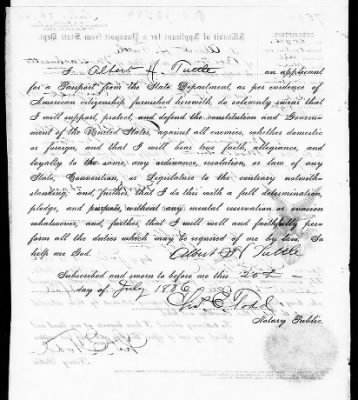 I, Albert H. Tuttle an applicant
for a Passport from the State Department, as per evidence of
American citizenship furnished herewith, do solemnly swear that
I will support, protect, and defend the constitution and Govern-
ment of the United States, against all enemies, whether domestic
or foreign, and that I will bear true faith, allegiance, and
loyalty to the same, any ordinance, resolution, or law of any
State, Convention, or Legislature to the contrary notwith-
standing; and, further, that I do this with a full determination,
pledge, and purpose, without any mental reservation or evasion
whatsoever; and, further, that I will well and faithfully per-
form all the duties which may be required of me by law. So
help me God. Albert H Tuttle
Subscribed and sworn to before me this
day of July 1886
E. Todd
Notary Public.